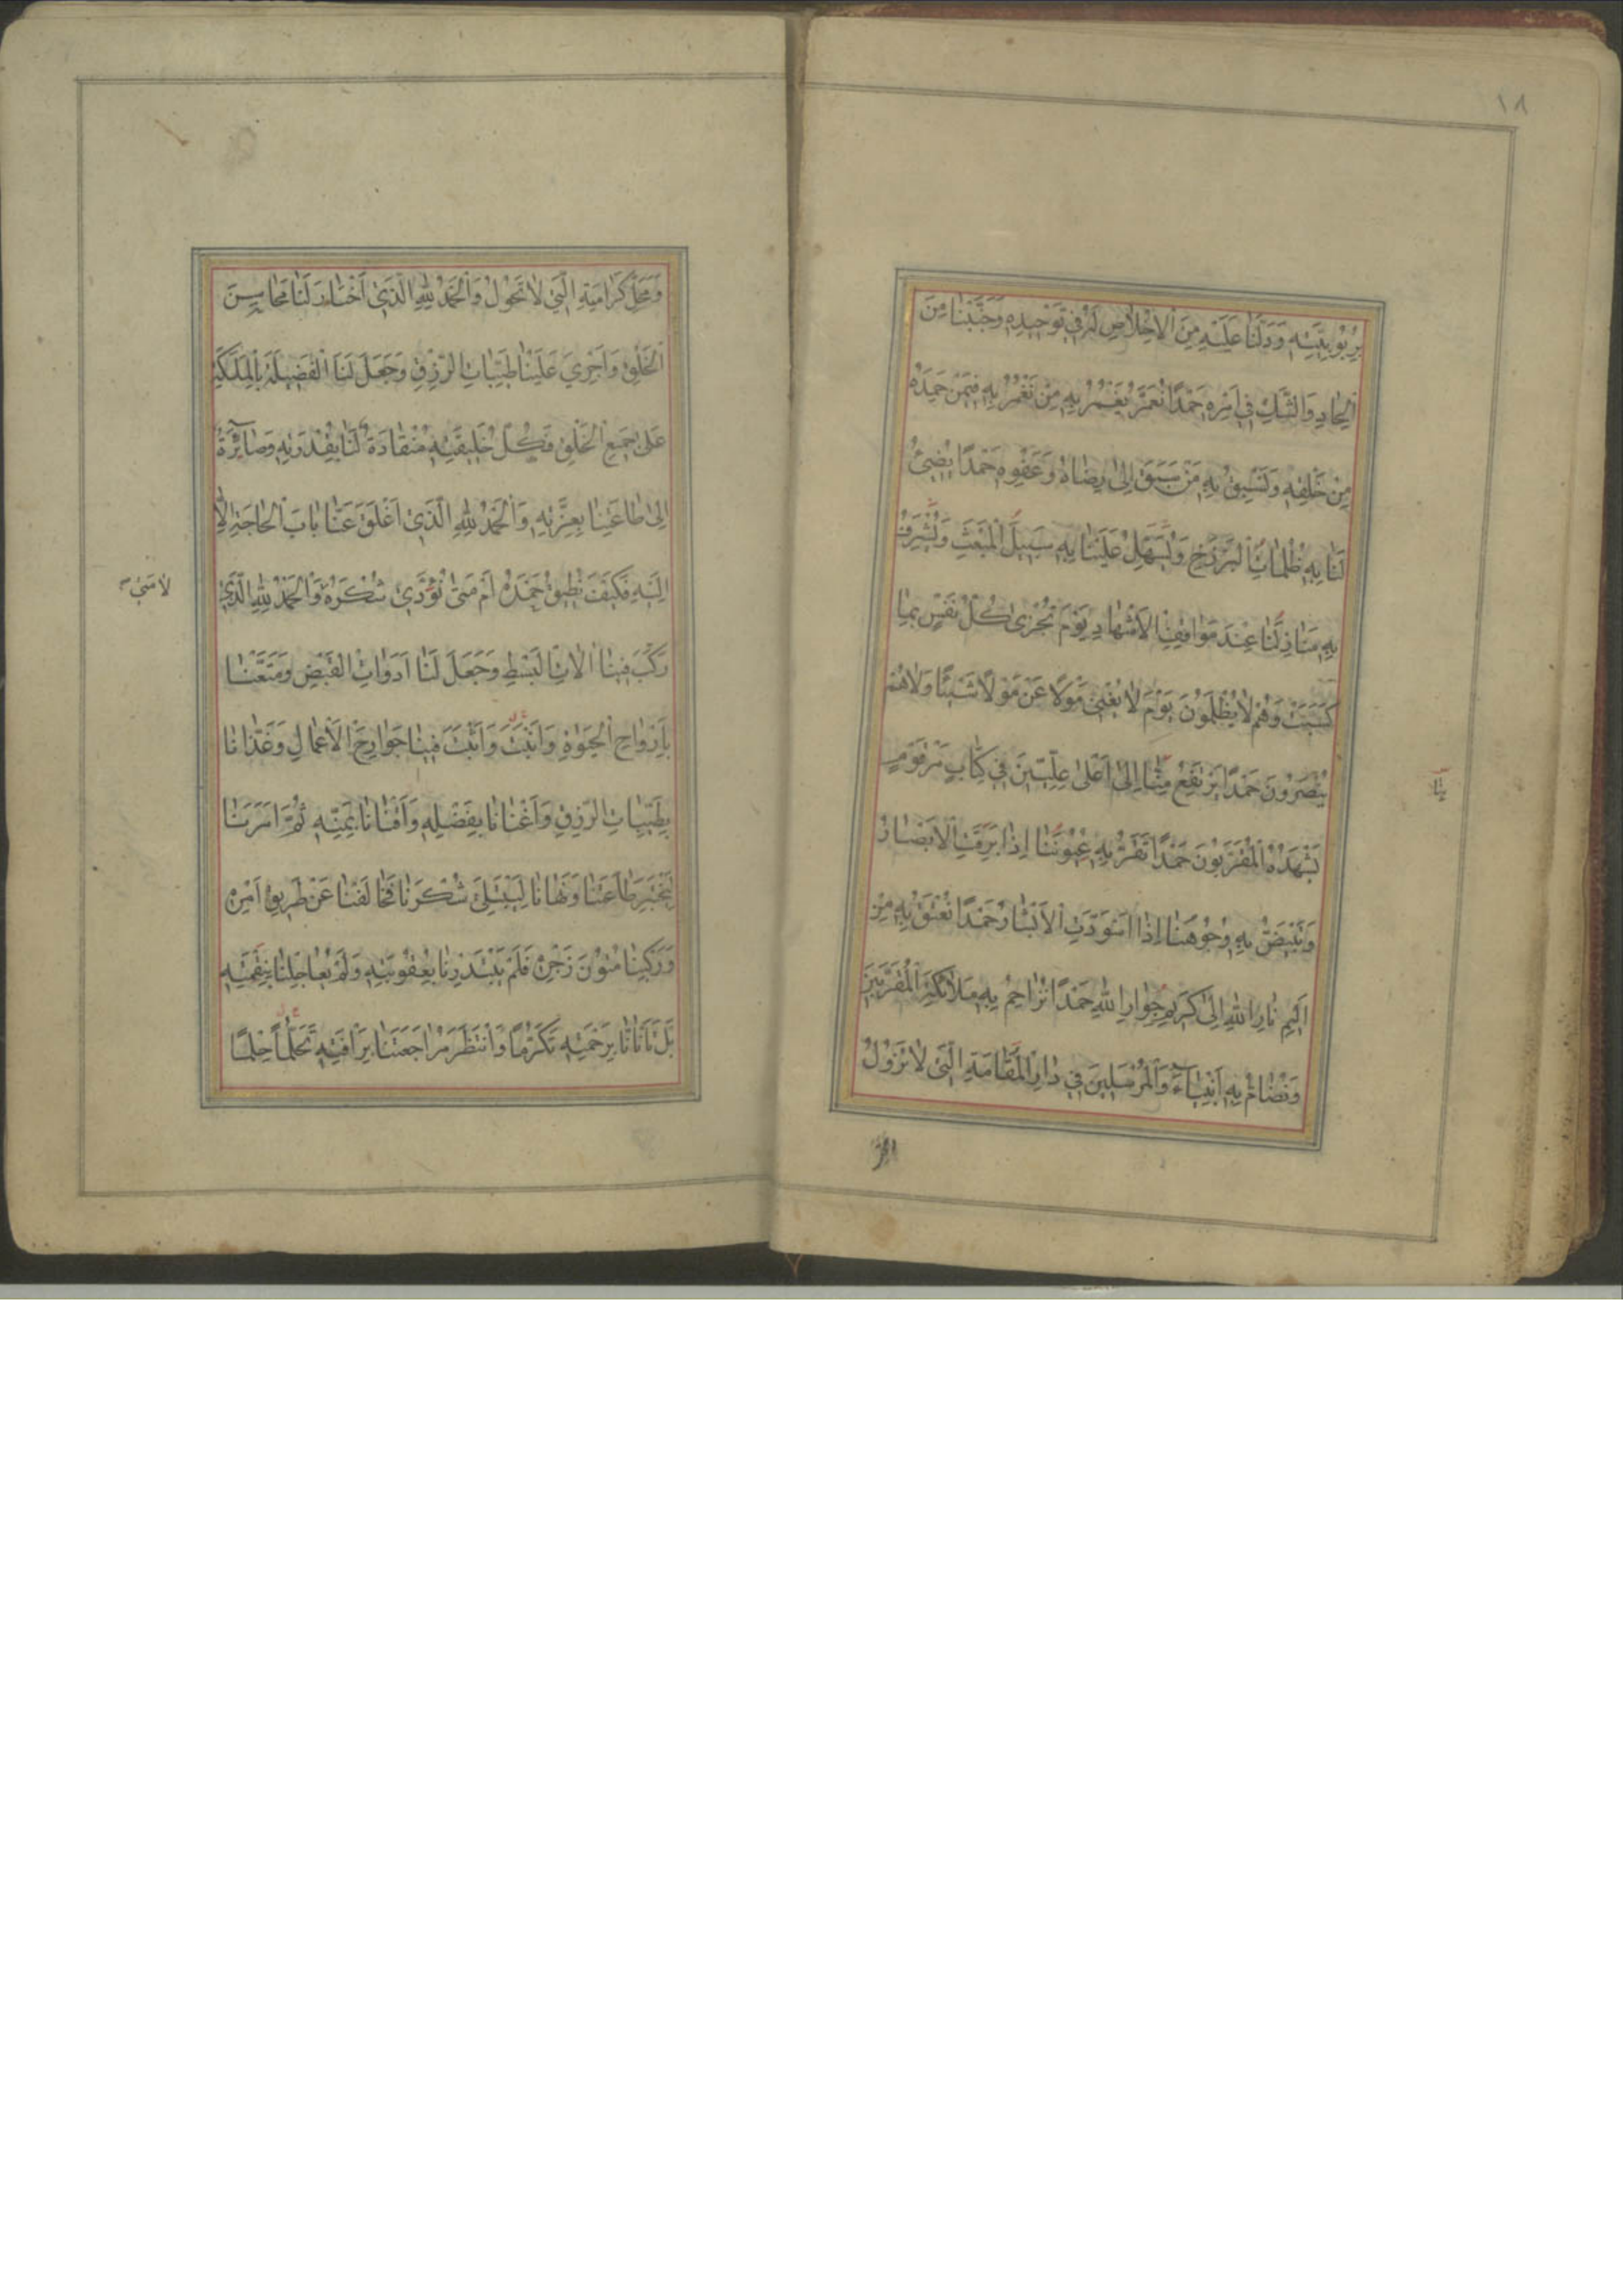 ١٨
بِرُبُوبِيَّتِهِ وَدَلَّنَا عَلَيْهِ مِنَ الْاِخْلَاصِ لَهُ فِي تَوْحِيدِهِ وَجَنَّبَنَا مِنَ
اِلْحَادِ وَالشَّكِّ فِي اَمْرِهِ حَمْدًا نُعَمَّرُ بِهِ مِنْ بِهِ فِيمَنْ حَمِدَهُ
مِنْ خَلْقِهِ وَنَسْبِقُ بِهِ مَنْ سَبَقَ اِلٰى رِضَاهُ وَعَفْوِهِ حَمْدًا يُضِيئُ
لَنَا بِهِ ظُلُمَاتِ الْبَرْزَخِ وَيُسَهِّلُ عَلَيْنَا بِهِ سَبِيلَ الْمَبْعَثِ وَيُشَرِّفُ
بِهِ مَنَازِلَنَا عِنْدَ مَوَاقِفِ الْاَشْهَادِ يَوْمَ تُجْزٰى كُلُّ نَفْسٍ بِمَا
كَسَبَتْ وَهُمْ لَا يُظْلَمُونَ يَوْمَ لَا يُغْنِي مَوْلًا عَنْ مَوْلًا شَيْئًا وَلَا هُمْ
يُنْصَرُونَ حَمْدًا يَرْتَفِعُ مِنَّا اِلٰى اَعْلٰى عِلِّيِّينَ فِي كِتَابٍ مَرْقُومٍ
يَشْهَدُهُ الْمُقَرَّبُونَ حَمْدًا تَقَرُّ بِهِ عُيُونُنَا اِذَا بَرِقَتِ الْاَبْصَارُ
وَتَبْيَضُّ بِهِ وُجُوهُنَا اِذَا اسْوَدَّتِ الْاَبْشَارُ حَمْدًا نُعْتَقُ بِهِ مِنْ
اَلِيمِ نَارِ اللهِ اِلٰى كَرِيمِ جِوَارِ اللهِ حَمْدًا نُزَاحِمُ بِهِ مَلَائِكَتَهُ الْمُقَرَّبِينَ
وَنُضَامُّ بِهِ اَنْبِيَاءَهُ وَالْمُرْسَلِينَ فِي دَارِ الْمُقَامَةِ الَّتِي لَا تَزُولُ
وَمَحَلِّ كَرَامَتِهِ الَّتِي لَا تَحُولُ وَالْحَمْدُ لِلّٰهِ الَّذِي اخْتَارَ لَنَا مَحَاسِنَ
الْخَلْقِ وَاَجْرٰي عَلَيْنَا طَيِّبَاتِ الرِّزْقِ وَجَعَلَ لَنَا الْفَضِيلَةَ بِالْمَلَكَةِ
عَلٰى جَمِيعِ الْخَلْقِ فَكُلُّ خَلِيقَتِهِ مُنْقَادَةٌ لَنَا بِقُدْرَتِهِ وَصَائِرَةٌ
اِلٰى طَاعَتِنَا بِعِزَّتِهِ وَالْحَمْدُ لِلّٰهِ الَّذِي اَغْلَقَ عَنَّا بَابَ الْحَاجَةِ اِلَّا
اِلَيْهِ فَكَيْفَ نُطِيقُ حَمْدَهُ اَمْ مَتٰى نُؤَدِّي شُكْرَهُ وَالْحَمْدُ لِلّٰهِ الَّذِي
لَا مَتٰى
رَكَّبَ فِينَا اٰلَاتِ الْبَسْطِ وَجَعَلَ لَنَا اَدَوَاتِ الْقَبْضِ وَمَتَّعَنَا
بِاَرْوَاحِ الْحَيٰوةِ وَاَثْبَتَ وَاَثْبَتَ فِينَا جَوَارِحَ الْاَعْمَالِ وَغَذَّانَا
بِطَيِّبَاتِ الرِّزْقِ وَاَغْنَانَا بِفَضْلِهِ وَاَقْنَانَا بِمَنِّهِ ثُمَّ اَمَرَنَا
لِيَخْتَبِرَ طَاعَتَنَا وَنَهَانَا لِيَبْتَلِيَ شُكْرَنَا فَخَالَفْنَا عَنْ طَرِيقِ اَمْرِهِ
وَرَكِبْنَا مُتُونَ زَجْرِهِ فَلَمْ يَبْتَدِرْنَا بِعُقُوبَتِهِ وَلَمْ يُعَاجِلْنَا بِنِقْمَتِهِ
بَلْ تَاَنَّانَا بِرَحْمَتِهِ تَكَرُّمًا وَانْتَظَرَ مُرَاجَعَتَنَا بِرَاْفَتِهِ حِلْمًا